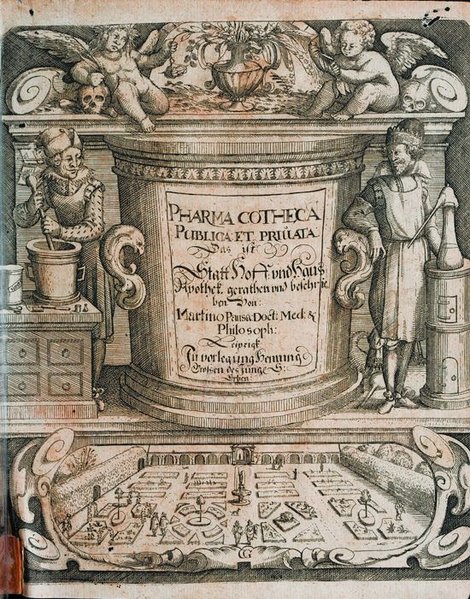 PHARMACOTHECA
PUBLICA ET PRIUATA
Das ist
Statt Hoff und Hauß
Apothek. gerathen und beschrie
ben Von:
Martino Pansa Doct: Med: &
Philosoph:
Leipzigk
In vorlegung Henning
Großen des jünge:
Erben
CG